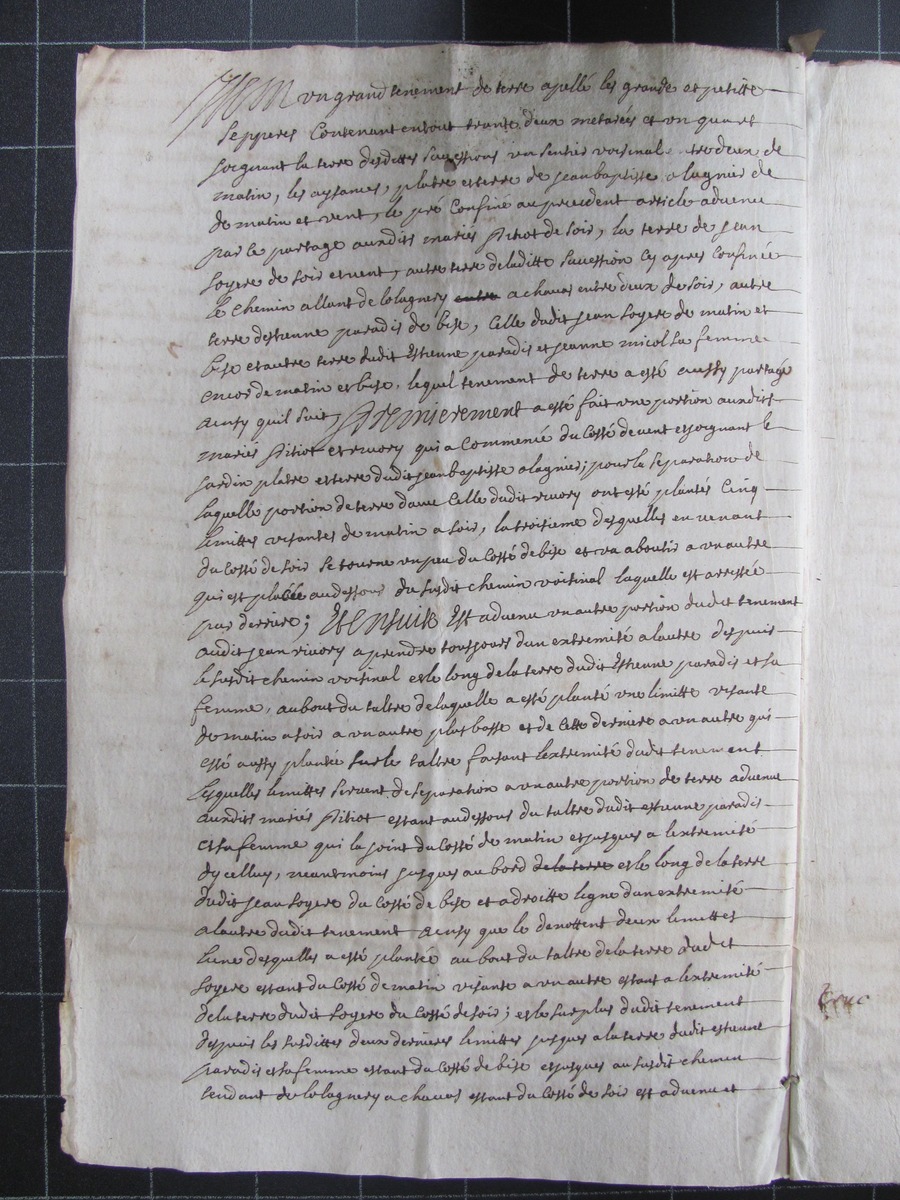 Item un grand tenement de terre apellé les grande et petitte
sepperes contenant entout trante deux metarées et un quart
joignant la terre desdittes successions un sentir voisinal entredeux de
matin, les aysances, platre et terre de jean baptiste alagnier de
de matin et vent, le pré confiné au precedent article advenu
par le partage auxdits mariés pitiot de soir, la terre de jean
soyere de soir et vent, autre terre deladitte succession cy apres confinée
le chemin allant de lolagnery entre a chavas entre deux de soir, autre
terre destienne paradis de bise, celle dudit jean soyere de matin et
bise et autre terre dudit Estienne paradis et jeanne micol sa femme
encor de matin et bise. lequel tenement de terre a esté aussy partagé
ainsy quil suit, Premierement a esté fait une portion auxdits
mariés pitiot et rivory qui a commencé du costé de vent et joignant le
jardin platre et terre dudit jean baptiste alagnier; pour la separation de
laquelle portion de terre davec celle dudit rivory ont esté plantés cinq
limittes visantes de matin a soir, la troisieme desquelles en venant
du costé de soir se tourne un peu du costé de bise et va aboutir a un autre
qui est placée au dessous du susdit chemin voisinal laquelle est arrestée
par derrire; Et Ensuite Est advenu un autre portion dudit tenement
audit jean rivory a prendre tousjours dun extremité a lautre despuis
le susdit chemin voisinal et le long de la terre dudit Estienne paradis et sa
femme, au bout du taltre de laquelle a esté planté une limitte visante
de matin a soir a un autre plus basse et de cette derniere a un autre qui
esté aussy plantée sur le taltre faisant lextremité dudit tenement
lesquelles limittes servent de separation a un autre portion de terre advenue
auxdits mariés pitiot estant au dessous du taltre dudit estienne paradis
et sa femme qui la joint du costé de matin et jusques a lextremité
dycelluy, neantmoins jusques au bord de la terre et le long de la terre
dudit jean soyere du costé de bise et a droitte ligne dun extremité
a lautre dudit tenement ainsy que le denottent deux limittes
lune desquelles a esté plantée au bout du taltre de la terre dudit
soyere estant du costé de matin visante a un autre estant a lextremité
de la terre dudit soyere du costé de soir; et le surplus dudit tenement
despuis les susdittes deux dernieres limittes jusques a la terre dudit estienne
paradis et sa femme estant du costé de bise et jusques au susdit chemin
tendant de lolagnery a chavas estant du costé de soir est advenu et